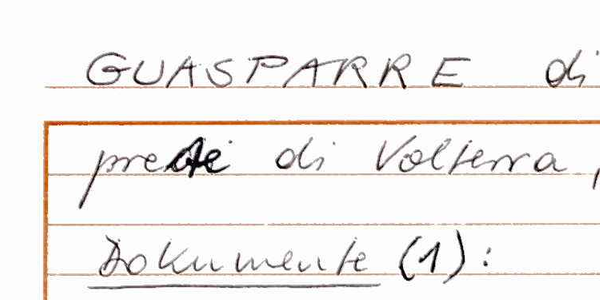 GUASPARRE di
prete di Volterra,
Dokumente (1):